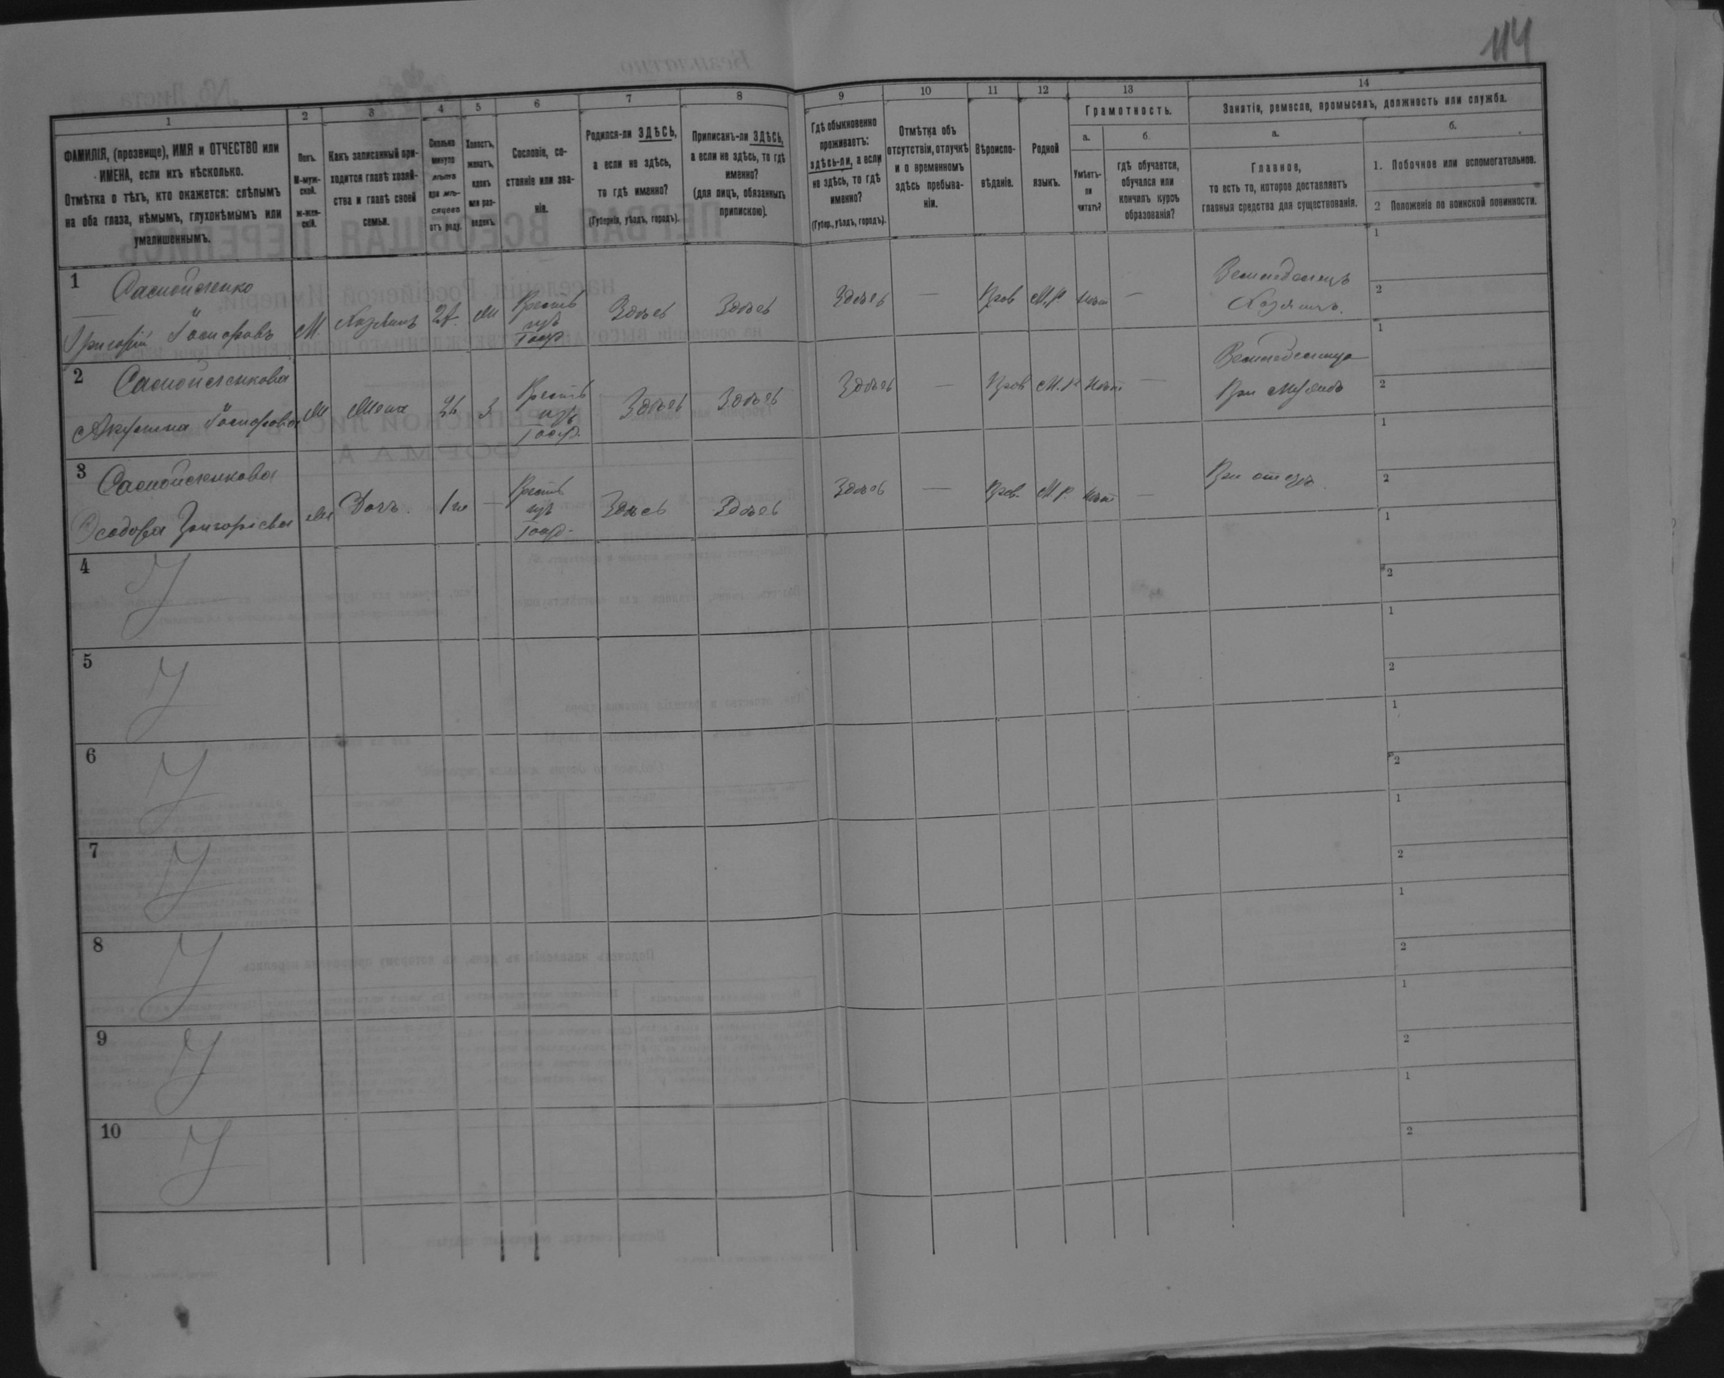 114
1
2
3
4
5
6
7
8
9
10
11
12
13
14
ФАМИЛІЯ, (прозвище), ИМЯ и ОТЧЕСТВО или
ИМЕНА, если ихъ нѣсколько.
Отмѣтка о тѣхъ, кто окажется: слѣпымъ
на оба глаза, нѣмымъ, глухонѣмымъ или
умалишеннымъ.
Полъ.
М-муж-
ской.
ж-жен-
скій.
Какъ записанный при-
ходится главѣ хозяй-
ства и главѣ своей
семьи.
Сколько
минуло
лѣтъ
или мѣ-
сяцевъ
отъ роду.
Холостъ,
женатъ,
вдовъ
или раз-
веденъ.
Сословіе, со-
стояніе или зва-
ніе.
Родился-ли ЗДѢСЬ,
а если не здѣсь,
то гдѣ именно?
(Губернія, уѣздъ, городъ).
Приписанъ-ли ЗДѢСЬ,
а если не здѣсь, то гдѣ
именно?
(для лицъ, обязанныхъ
припискою).
Гдѣ обыкновенно
проживаетъ:
здѣсь-ли, а если
не здѣсь, то гдѣ
именно?
(Губер., уѣздъ, городъ).
Отмѣтка объ
отсутствіи, отлучкѣ
и о временномъ
здѣсь пребыва-
ніи.
Вѣроиспо-
вѣданіе.
Родной
языкъ.
Грамотность.
а.
б.
Умѣетъ-
ли
читать?
гдѣ обучается,
обучался или
кончилъ курсъ
образованія?
Занятія, ремесло, промыселъ, должность или служба.
а.
б.
Главное,
то есть то, которое доставляетъ
главныя средства для существованія.
1. Побочное или вспомогательное.
2 Положеніе по воинской повинности.
1
Самойленко
Григорій
М
Хозяинъ
Крест
изъ
Госуд
Здѣсь
Здѣсь
Здѣсь
—
Прав
М.Р
нѣт
—
Земледелецъ
Хозяинъ
1
2
2
Самойленкова
Акулина
Жена
26
З
Крест
изъ
Госуд.
Здѣсь
Здѣсь
Здѣсь
—
Прав
М.Р
Нѣт
—
При мужѣ
1
2
3
Самойленкова
Григоріева
Дочь.
—
Крест
изъ
Госуд.
Здѣсь
Здѣсь
Здѣсь
—
Прав.
М.Р.
нѣт
—
При отцѣ
1
2
4
1
2
5
1
2
6
1
2
7
1
2
8
1
2
9
1
2
10
1
2